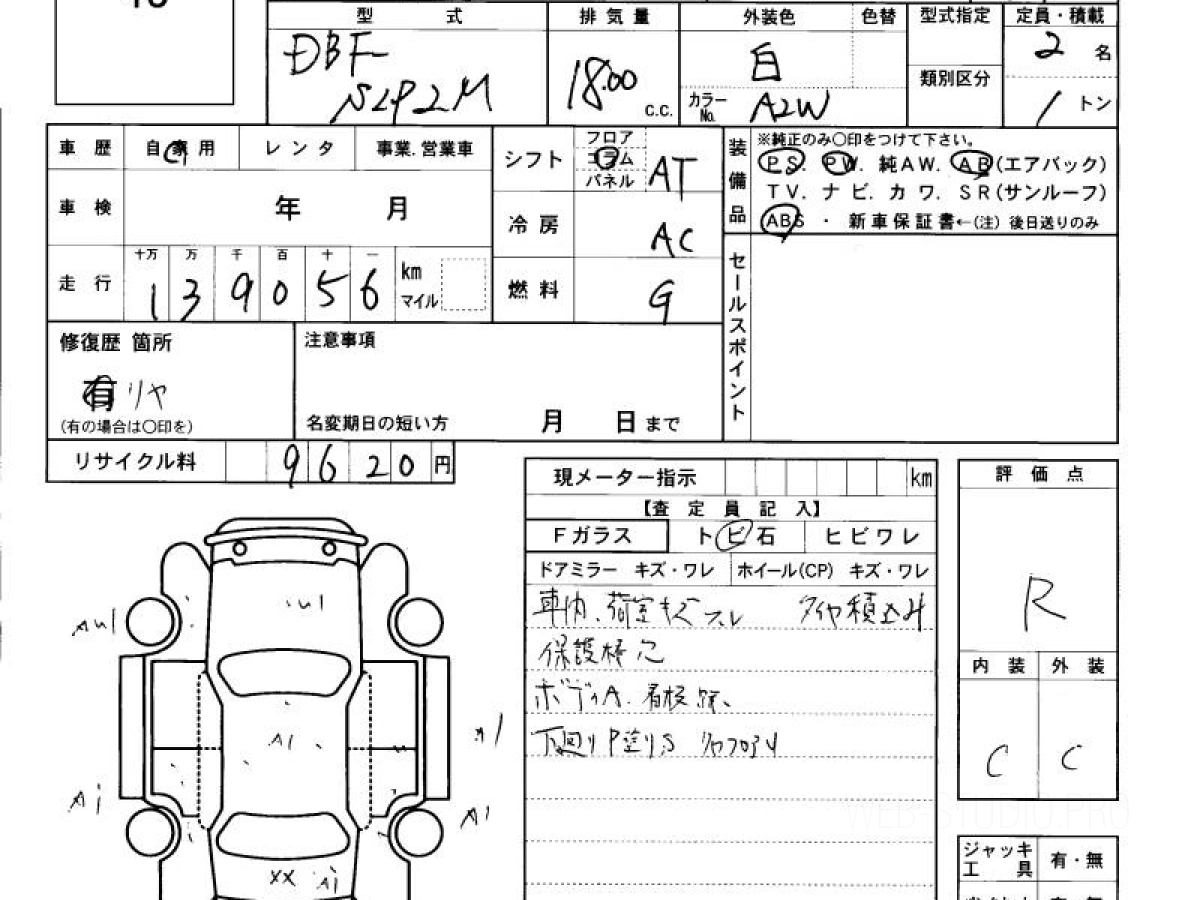 型 式 排気量 外装色 色替 型式指定 定員・積載
DBF
SLP2M
1800 c.c.
白
カラーNo. A2W
類別区分
2 名
1 トン
車歴 自家用 レンタ 事業.営業車
シフト フロア コラム パネル AT
装備品
※純正のみ○印をつけて下さい。
PS. PW. 純AW. AB(エアバック)
TV. ナビ. カワ. SR(サンルーフ)
ABS ・ 新車保証書←(注) 後日送りのみ
車検 年 月
冷房 AC
走行 十万 万 千 百 十 一
139056 km マイル
燃料 G
セールスポイント
修復歴 箇所
有 リヤ
(有の場合は○印を)
注意事項
名変期日の短い方 月 日まで
リサイクル料 9620円
現メーター指示 km
【査定員記入】
Fガラス トビ石 ヒビワレ
ドアミラー キズ・ワレ ホイール(CP) キズ・ワレ
車内、荷室キズスレ タイヤ積込み
保護棒穴
ボディA. 看板跡、
下廻りP塗りS リヤフロアU
評価点
R
内装 外装
C C
ジャッキ 有・無
工具
AU1
U1
A1
A1
A1
A1
XX A1
WEB-STUDIO.PRO